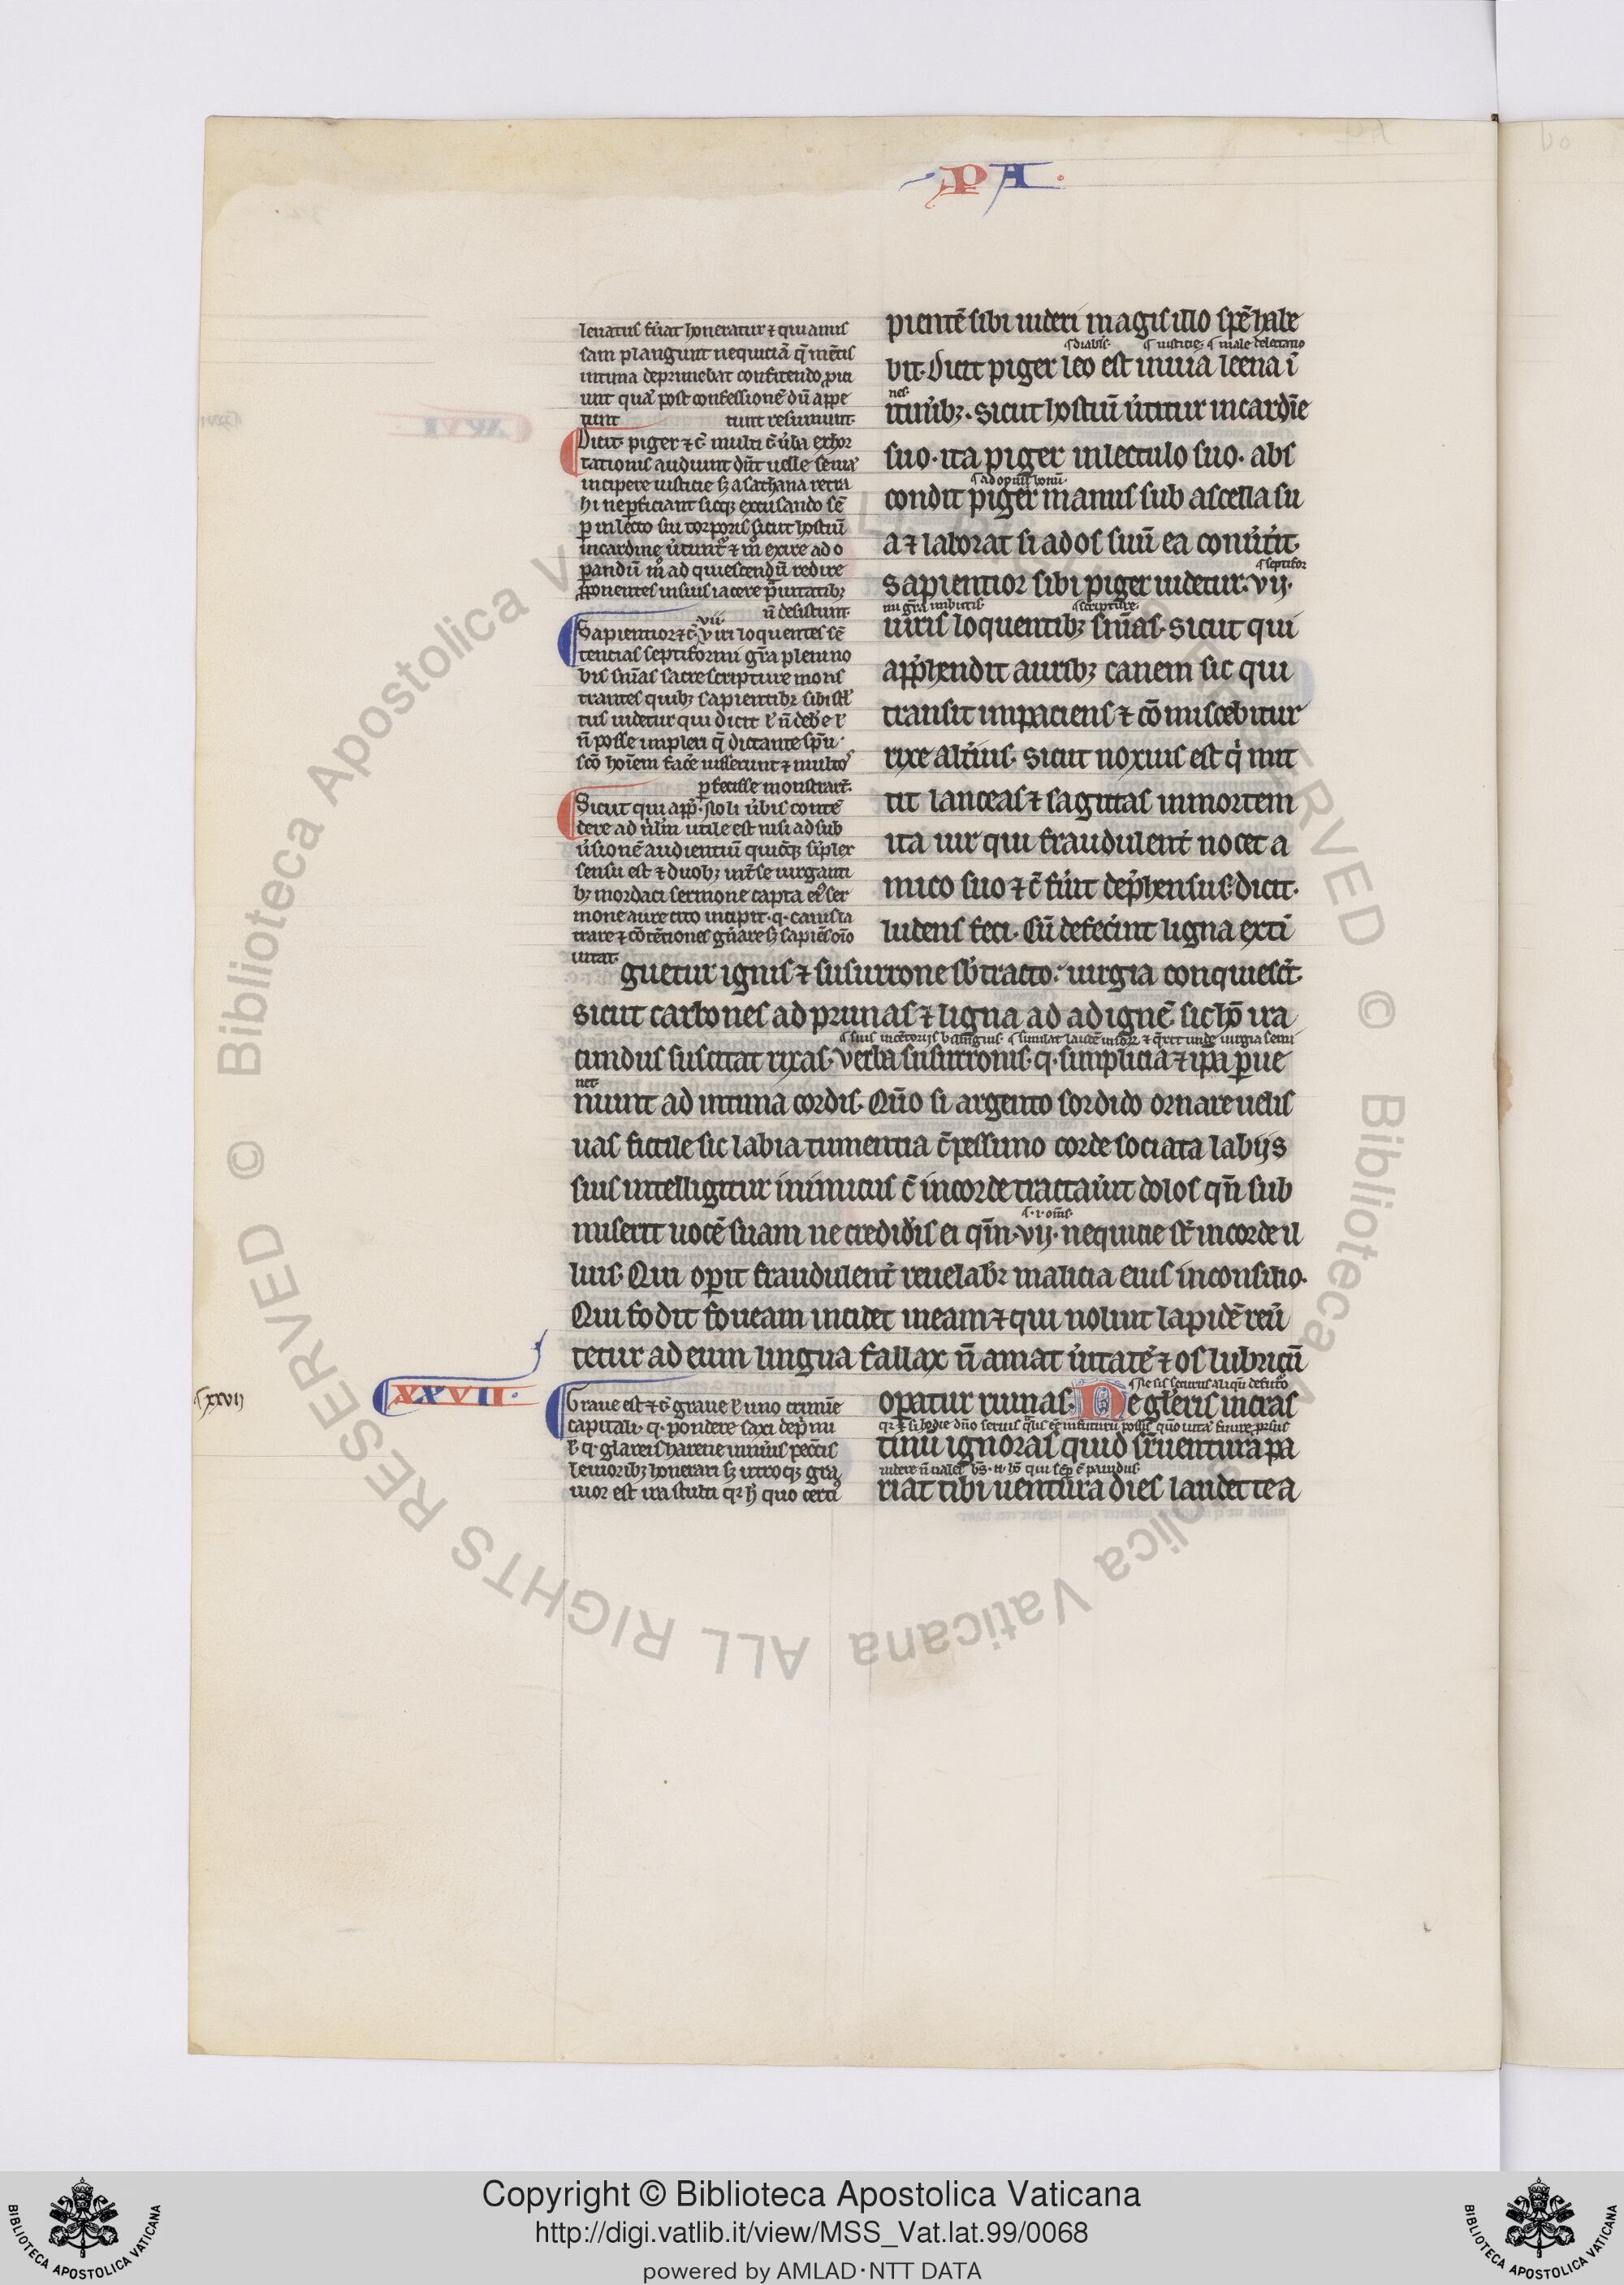 PA
leuatus fu̾at honeratur ⁊ qui amis
sam plangunt nequiciā q̄ mētis
intima deprimebat confitendo ꝓici
unt quā post confessionē dū appe
tunt resumunt.
Dicit piger ⁊ c̄ multi c̄ u̾ba exhor
tationis audiunt dn̄t uelle semi
incipere iusticie sꝫ a sathana retra
hi ne ꝑficiant sicqꝫ excusando sē
ꝑ in lecto sui corporis sicut hostiū
in cardine
ꝑandū ad quiescendū redire
ꝓponentes in suis iacere prauitatibꝫ
n̄ desistunt.
Sapientior ⁊ c̄ vii uiri loquentes sē
tencias septiformi gr̄a pleni no
bis sn̄ias sacre scripture mons
trantes quibꝫ sapientibꝫ sibi
tus uidetur qui dicit
n̄ posse impleri q̄ dictante sp̄u
sc̄o hoīem fac̾e iusserunt ⁊ multos
ꝑfecisse monstrāt.
Sicut qui app̄. noli u̾bis conte
dere ad utile est nisi ad sub
u̾sionē audientiū quicūqꝫ
sensu est ⁊ duobꝫ int̾ se iurganti
bꝫ mordaci sermone capta ser
mone aure cito incipit. q. canis la
trare ⁊ cōtētiones gn̄are sꝫ sapiēs
uitat.
pientē sibi uideri magis illo spē habe
s diabl̄s. s iusticie. s male delectatio
bit. Dicit piger leo est in uia leena ī
nes.
itin̾ibꝫ. Sicut hostiū u̾titur in cardīe
suo. ita piger in lectulo suo. abs
s ad opus bonū.
condit piger manus sub ascella su
a ⁊ laborat si ad os suū ea conu̾t̾it.
s septifor
Sapientior sibi piger uidetur. vij.
mi gr̄a imbutis. s scripture.
uiris loquentibꝫ sn̄ias. Sicut qui
app̄hendit auribꝫ canem sic qui
transit impaciens ⁊ cō miscebitur
rixe alt̾ius. Sicut noxius est qⁱ mit
tit lanceas ⁊ sagittas in mortem
ita uir qui fraudulent̾ nocet a
mico suo ⁊ c̄ fu̾it dep̄hensus. dicit.
ludens feci. Cū defec̾int ligna exti
guetur ignis ⁊ susurrone sb̾tracto. iurgia conquiesc̄t.
Sicut carbones ad prunas ⁊ ligna ad ad ignē sic hō ira
cundus suscitat rixas. Verba susurronis. q. simplicia ⁊ ipa ꝑue
net.
niunt ad intima cordis. Qūo si argento sordido ornare uelis
uas fictile sic labia tumentia c̄ pessimo corde sociata labijs
suis intelligitur inimicus c̄ in corde tractau̾it dolos qn̄ sub
s. i. oīns.
miserit uocē suam ne credid̾is ei qm̄. vij. nequicie st̄ in corde il
lius. Qui oꝑit fraudulent̾ reuelabꝛ malicia eius in consilio.
Qui fodit foueam incidet in eam ⁊ qui uoluit lapidē reu̾
tetur ad eum lingua fallax n̄ amat u̾itatē ⁊ os lubricū
oꝑatur ruinas. Ne gl̄eris in cras
tinū ignoras quid suꝑuentura pa
riat tibi uentura dies laudet te a
XXVII.
s xxvij
Graue est ⁊ c̄ graue uno crimīe
capitali. q. pondere saxi dep̄mi
q. glareis harene
leuioribꝫ honerari sꝫ utroqꝫ gra
uior est ira stulti qꝛ quo
Copyright © Biblioteca Apostolica Vaticana
http://digi.vatlib.it/view/MSS_Vat.lat.99/0068
powered by AMLAD·NTT DATA
BIBLIOTECA APOSTOLICA VATICANA
BIBLIOTECA APOSTOLICA VATICANA
© Biblioteca Apostolica Vaticana ALL RIGHTS RESERVED